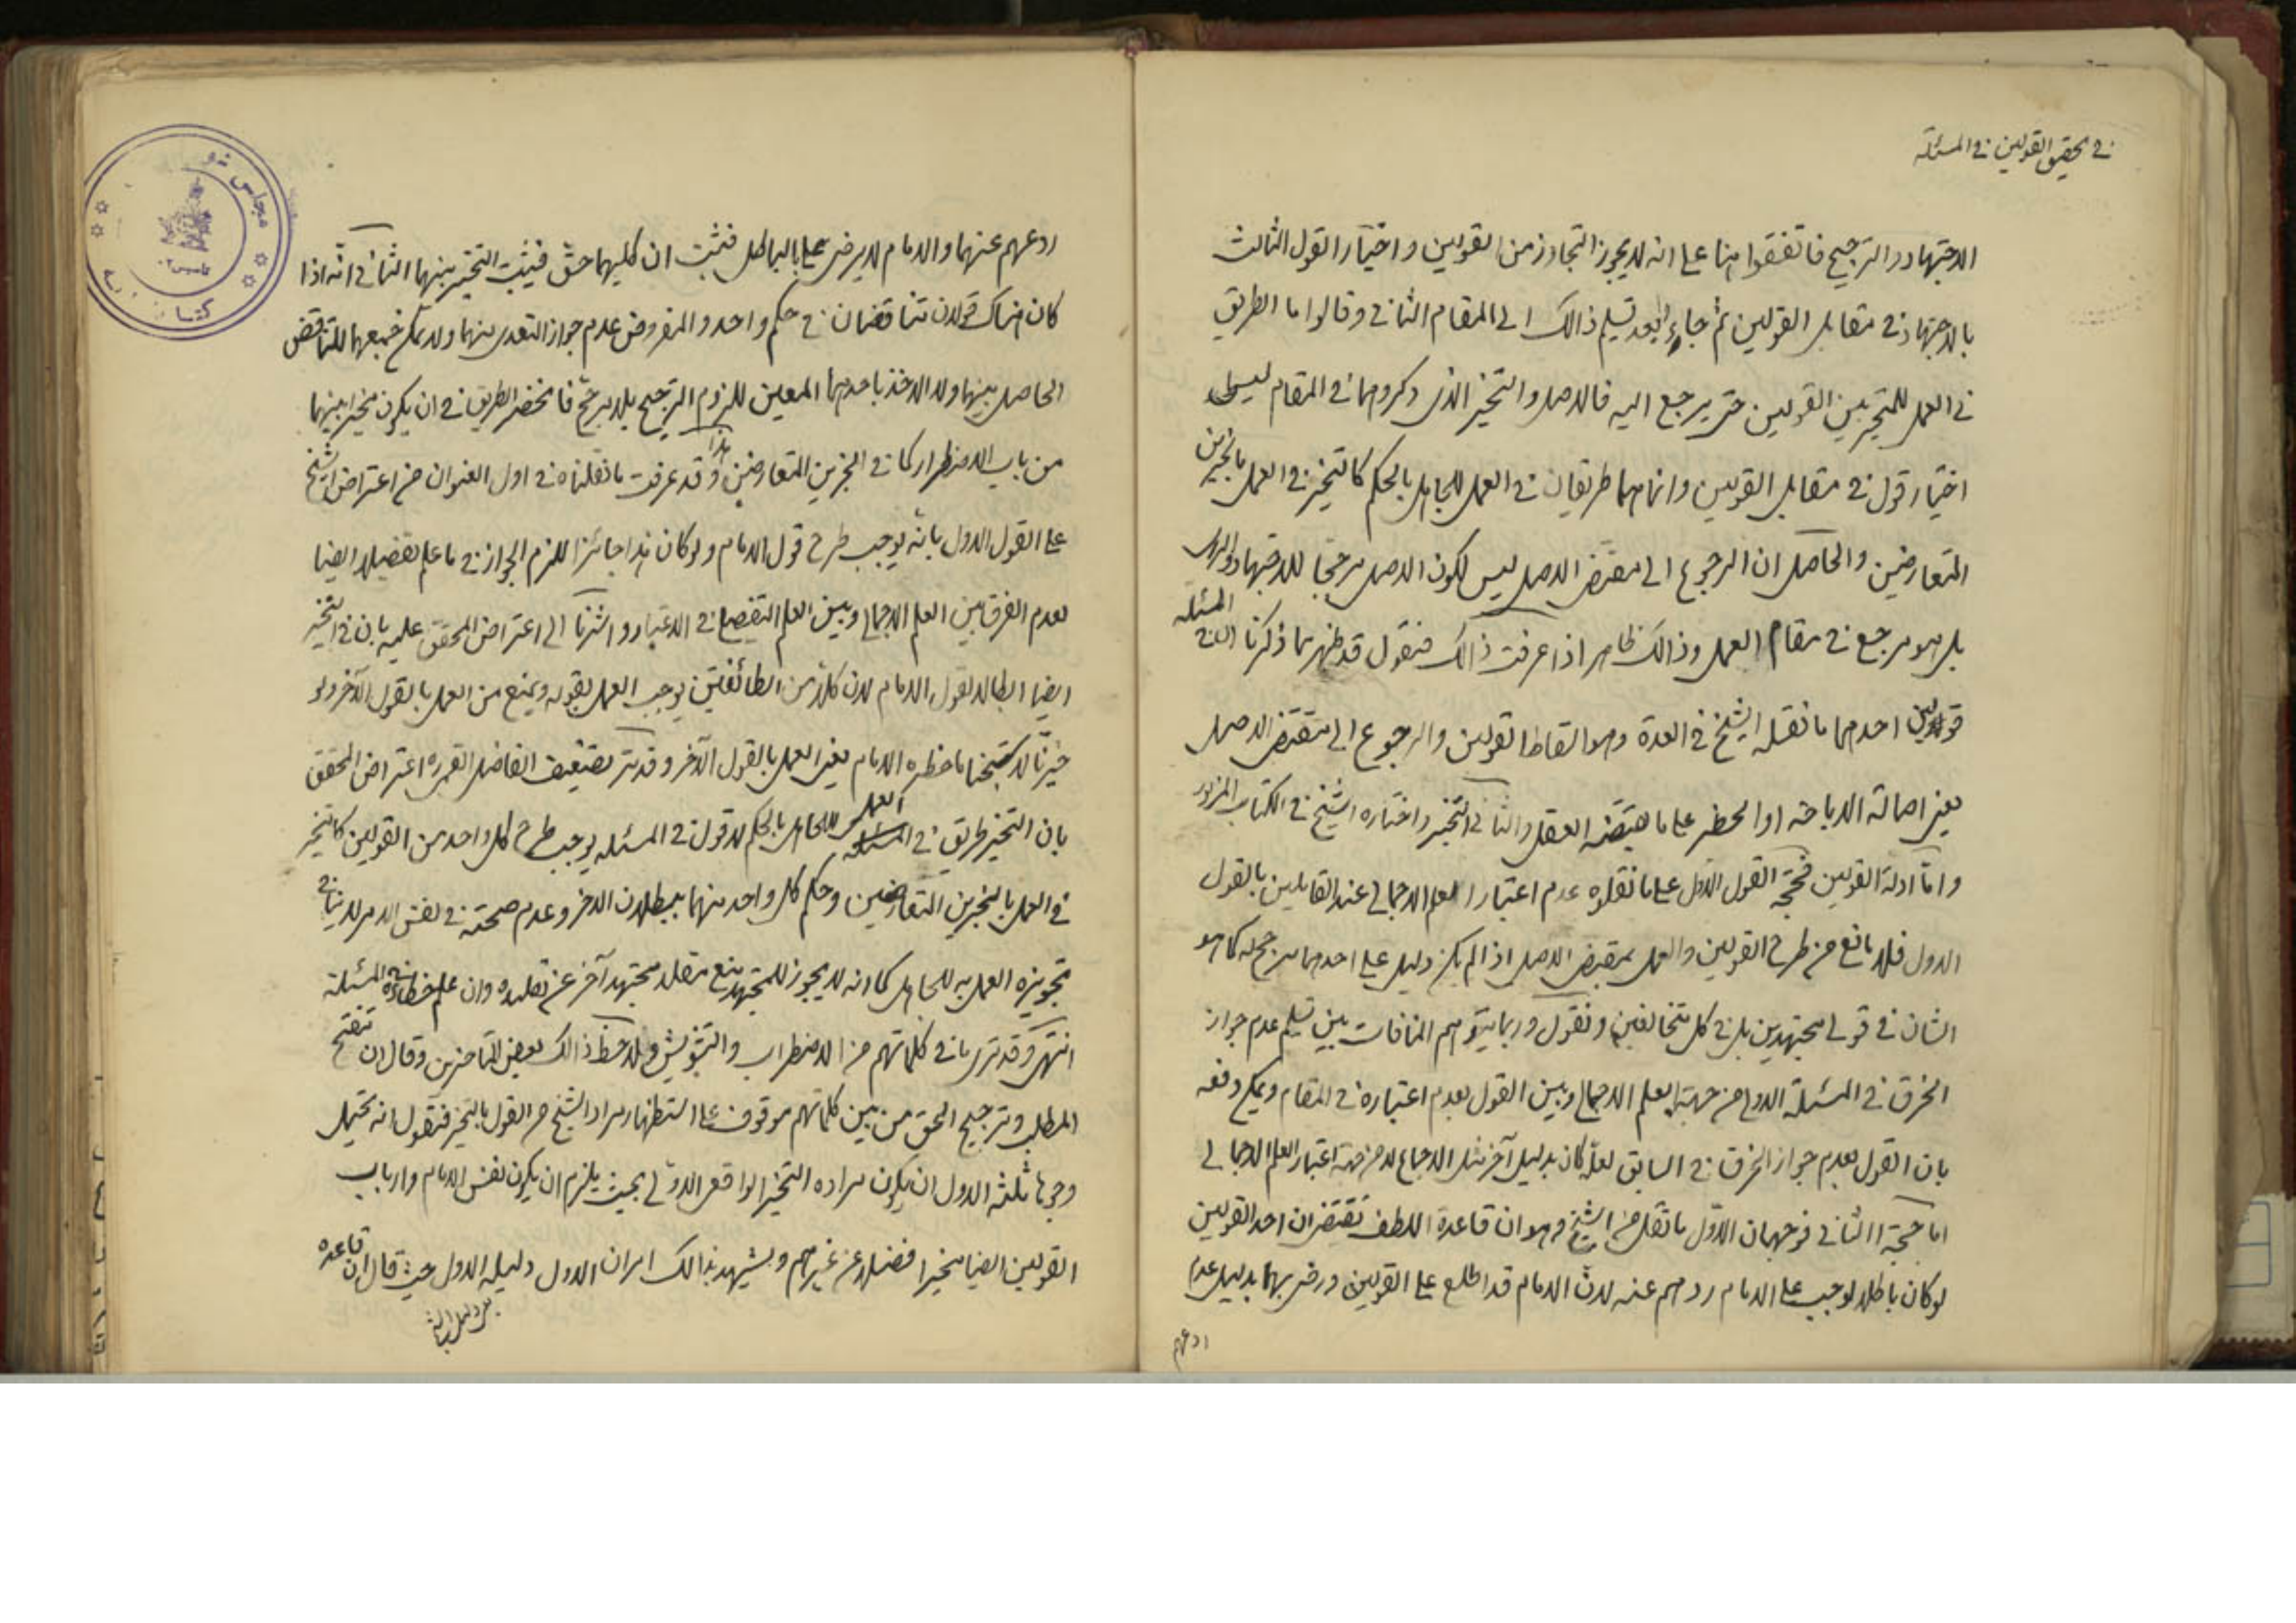 في تحقيق القولين في المسئلة
الاجتهاد والترجيح فاتفقوا هنا على انه لا يجوز التجاوز من القولين واختيار القول الثالث
بالاجتهاد في مقابل القولين ثم جاءوا بعد تسليم ذالك الى المقام الثاني وقالوا ما الطريق
في العمل للمتحير بين القولين حتى يرجع اليه فالاصل والتخيير الذى ذكروهما في المقام ليس
اختيار قول في مقابل القولين وانما هما طريقان في العمل للجاهل بالحكم كالتخيير في العمل بالخبرين
المتعارضين والحاصل ان الرجوع الى مقتضى الاصل ليس لكون الاصل مرجحا للاجتهاد
بل هو مرجع في مقام العمل وذالك ظاهر اذا عرفت ذالك فنقول قد ظهر مما ذكرنا ان في المسئلة
قولين احدهما ما نقله الشيخ في العدة وهو اسقاط القولين والرجوع الى مقتضى الاصل
يعنى اصالة الاباحة او الحظر على ما يقتضيه العقل والثاني التخيير واختاره الشيخ في الكتاب المزبور
وامّا ادلة القولين فحجّة القول الاول على ما نقلوه عدم اعتبار العلم الاجمالي عند القائلين بالقول
الاول فلا مانع من طرح القولين والعمل بمقتضى الاصل اذا لم يكن دليل على احدهما يرجح له كما هو
الشان في قولى مجتهدين بل في كل متخالفين ونقول وربما يتوهم المنافات بين تسليم عدم جواز
الخرق في المسئلة الاولى من جهة العلم الاجمالي وبين القول بعدم اعتباره في المقام ويمكن دفعه
بان القول بعدم جواز الخرق في السابق لعلّه كان بدليل آخر مثل الاجماع لا من جهة اعتبار العلم الاجمالي
اما حجة الثاني فوجهان الاوّل ما نقل من الشيخ وهو ان قاعدة اللطف تقتضى ان احد القولين
لو كان باطلا لوجب على الامام ردهم عنه لان الامام قد اطلع على القولين ورضى بهما بدليل عدم
ردعهم
ردعهم عنهما والامام لا يرضى بالباطل فثبت ان كليهما حق فيثبت التخيير بينهما الثاني انّه اذا
كان هناك قولان متناقضان في حكم واحد والمفروض عدم جواز التعدى منهما ولا يمكن جمعهما للتناقض
الحاصل بينهما ولا الاخذ باحدهما المعين للزوم الترجيح بلا مرجّح فانحصر الطريق في ان يكون مخيرا بينهما
من باب الاضطرار كما في الخبرين المتعارضين هذا وقد عرفت ما نقلناه في اول العنوان من اعتراض الشيخ
على القول الاول بانّه يوجب طرح قول الامام ولو كان هذا جائزا للزم الجواز في ما علم تفصيلا ايضا
لعدم الفرق بين العلم الاجمالي وبين العلم التفصيلي في الاعتبار واشرنا الى اعتراض المحقق عليه بان في التخيير
ايضا ابطالا لقول الامام لان كلا من الطائفتين يوجب العمل بقوله ويمنع من العمل بالقول الآخر ولو
خيّرنا لاستبحنا ما حظره الامام يعنى العمل بالقول الآخر وقد مر تضعيف الفاضل القمى ره اعتراض المحقق
بان التخيير طريق في العمل للجاهل بالحكم لا قول في المسئلة يوجب طرح كل واحد من القولين كالتخيير
في العمل بالخبرين المتعارضين وحكم كل واحد منهما ببطلان الاخر وعدم صحته في نفس الامر لا ينافى
تجويزه العمل به للجاهل كما انه لا يجوز للمجتهد منع مقلد مجتهد آخر عن تقليده وان علم خطاءه في المسئلة
انتهى وقد ترى ما في كلماتهم من الاضطراب والتشويش ولاحظ ذالك بعض المتاخرين وقال ان تنقيح
المطلب وترجيح الحق من بين كلماتهم موقوف على استظهار مراد الشيخ من القول بالتخيير فنقول انه يحتمل
وجوها ثلثة الاول ان يكون مراده التخيير الواقعى الاولى بحيث يلزم ان يكون نفس الامام وارباب
القولين ايضا مخيرا فضلا عن غيرهم ويشهد بذالك امران الاول دليله الاول حيث قال ان قاعدة